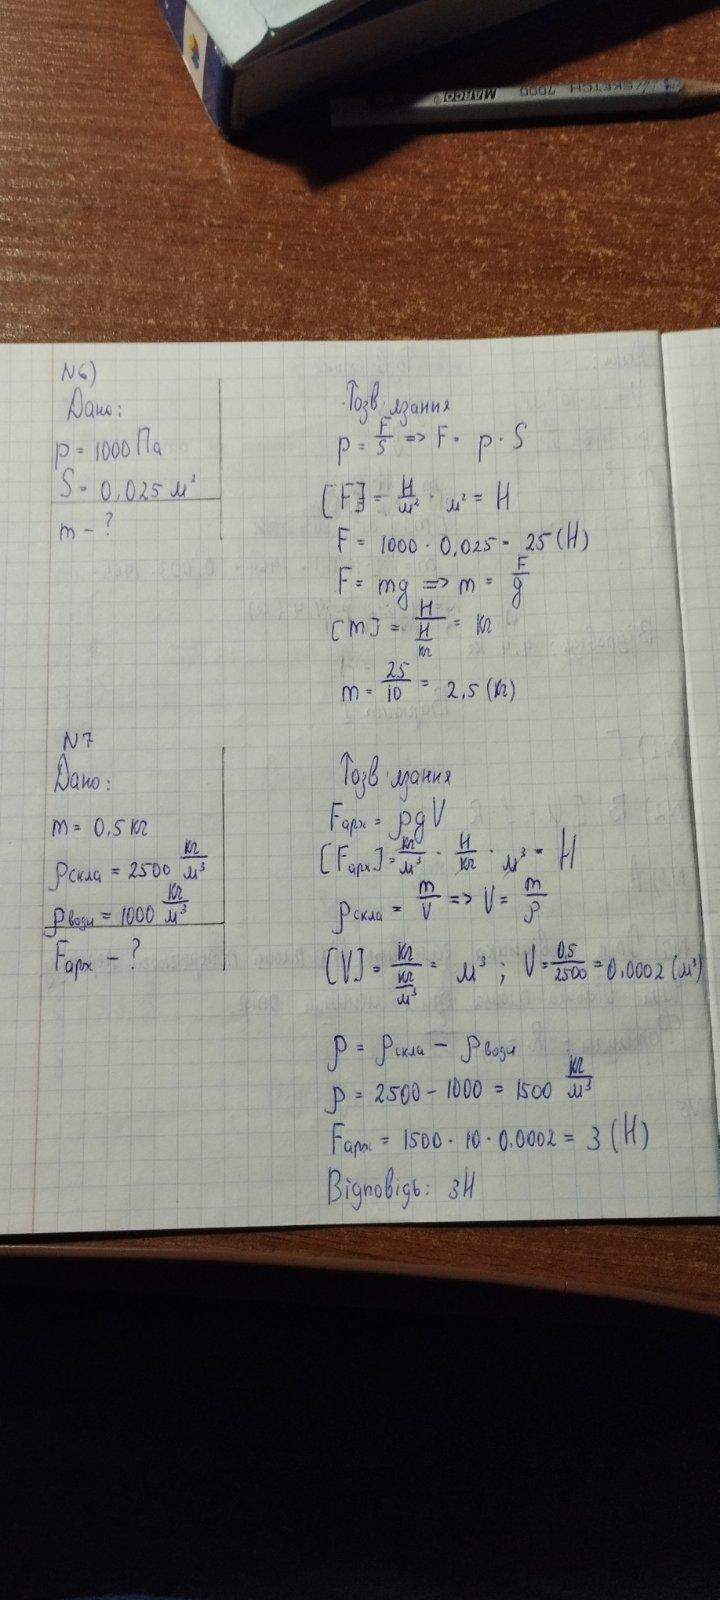 SKETCH 7000 MARCO
N6)
Дано:
p = 1000 Па
S = 0,025 м²
m - ?
Розв'язання
p = F/S => F = p · S
[F] = Н/м² · м² = Н
F = 1000 · 0,025 = 25 (Н)
F = mg => m = F/g
[m] = Н/(Н/кг) = кг
m = 25/10 = 2,5 (кг)
N7
Дано:
m = 0,5 кг
ρскла = 2500 кг/м³
ρводи = 1000 кг/м³
Fарх - ?
Розв'язання
Fарх = ρgV
[Fарх] = кг/м³ · Н/кг · м³ = Н
ρскла = m/V => V = m/ρ
[V] = кг/(кг/м³) = м³ ; V = 0,5/2500 = 0,0002 (м³)
ρ = ρскла - ρводи
ρ = 2500 - 1000 = 1500 кг/м³
Fарх = 1500 · 10 · 0,0002 = 3 (Н)
Відповідь: 3Н